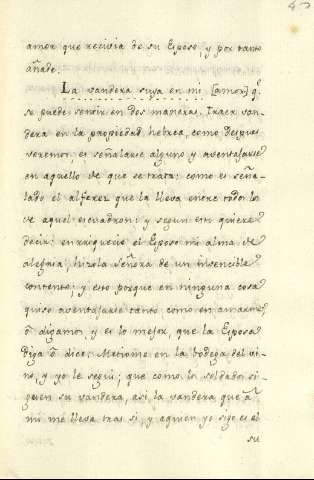 amor que recivia de su Esposo, y por tanto
añade.
La vandera suya en mi, [amor] q.e
se puede sentir en dos maneras. Traer van-
dera en la propiedad hebrea, como despues
veremos es señalarse alguno y aventajarse
en aquello de que se trata: como es seña-
lado el alferez que la lleva entre todos los
de aquel escuadron: y segun esto quiere
decir: enriqueció el Esposo mi alma de
alegria, hizola señora de un invencible
contento: y esto porque en ninguna cosa
quiso aventajarse tanto como en amarme;
ó digamos, y es lo mejor, que la Esposa
diga ó dice: Metiome en la bodega del vi-
no, y yo le seguí; que como los soldados si-
guen su vandera, asi la vandera que á
mi me lleva tras si, y a quien yo sigo es el
su